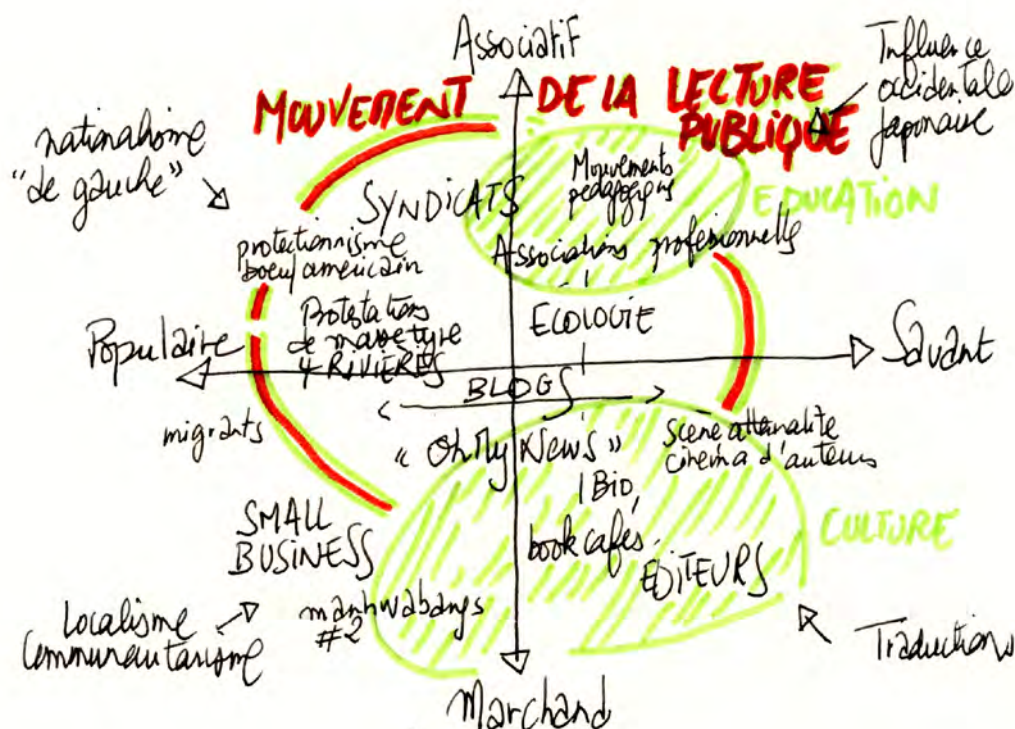 Associatif
Influence
occidentale
Japonaise
MOUVEMENT DE LA LECTURE
PUBLIQUE
nationalisme
"de gauche"
Mouvements
pédagogiqs
SYNDICATS
EDUCATION
protectionnisme
boeuf américain
Associations profesionnelles
Protestations
de masse type
4 RIVIÈRES
ECOLOGIE
Populaire
Savant
BLOGS
migrants
« OhMy News »
Scène
cinéma d'auteurs
Bio,
SMALL
BUSINESS
book cafés
EDITEURS
CULTURE
manhwabangs
#2
Localisme
Communautarisme
Traductions
Marchand